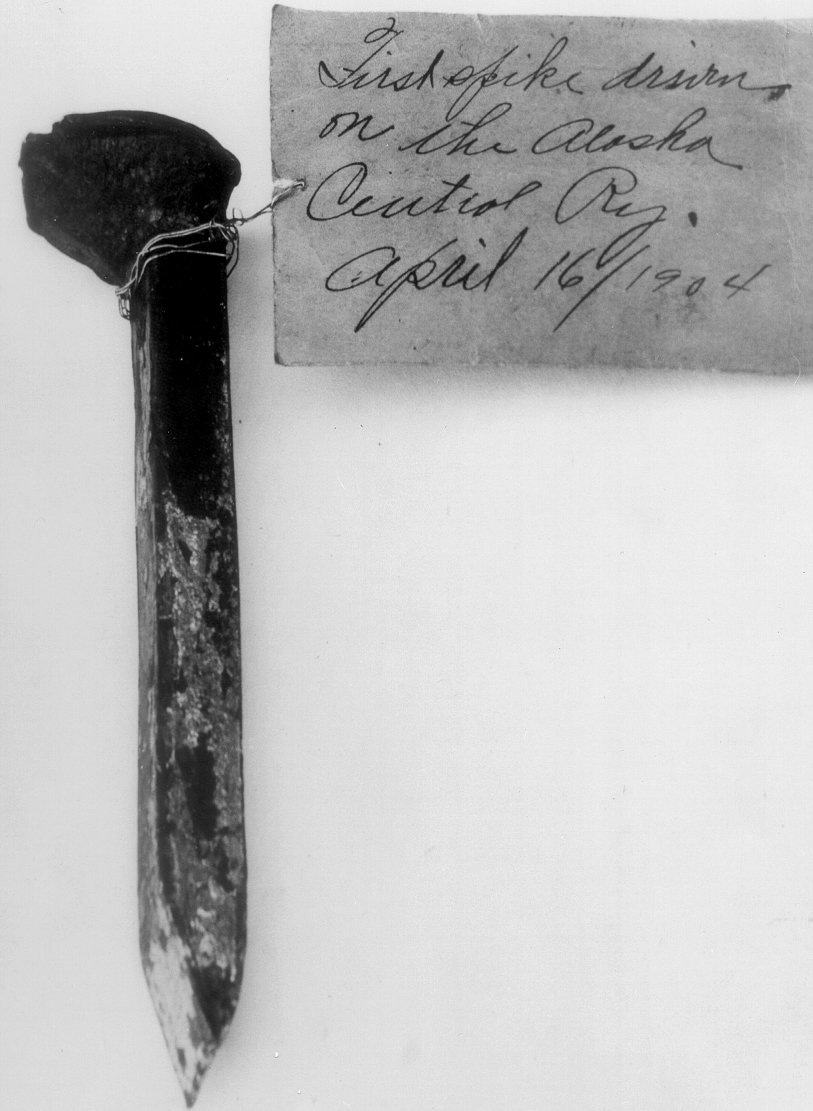 First spike driven
on the Alaska
Central Ry.
April 16/1904